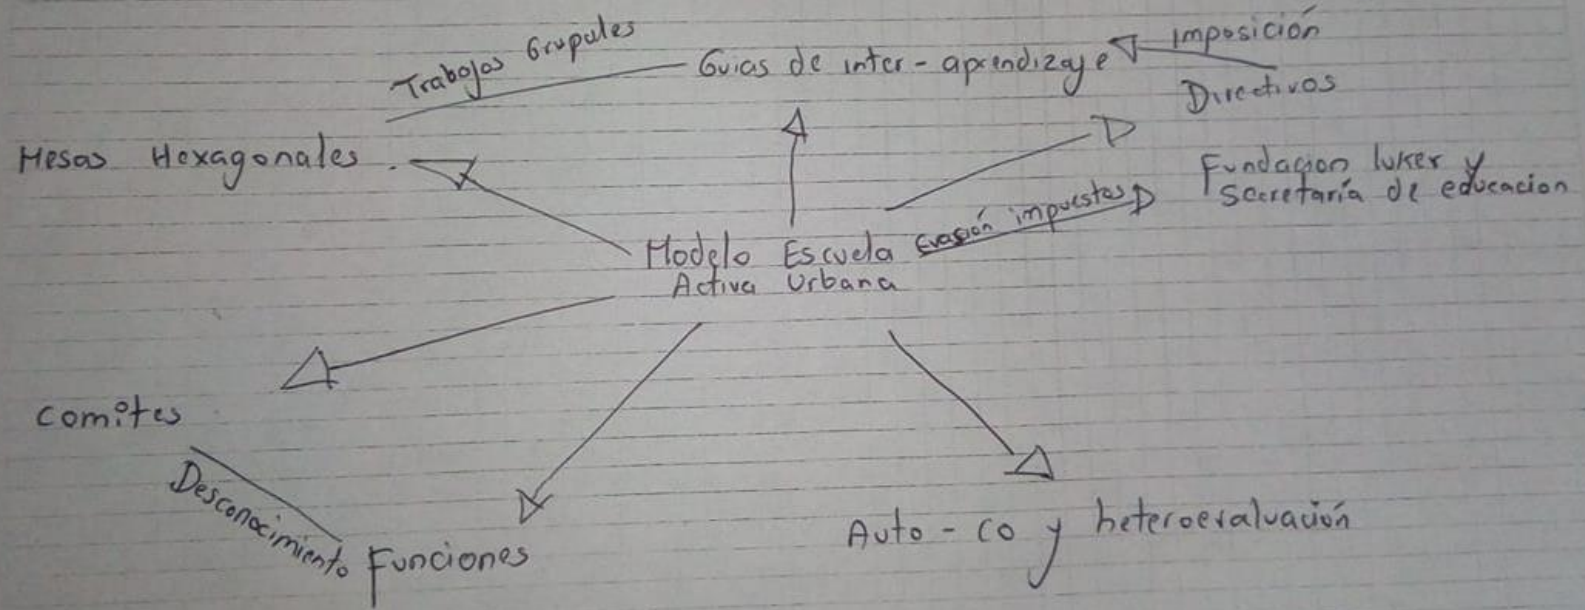 Trabajos Grupales
Guias de inter-aprendizaje
Imposición
Directivos
Mesas Hexagonales.
Fundacion luker y
Secretaría de educacion
Modelo Escuela
Activa Urbana
Evasión impuestos
Comites
Desconocimiento
Funciones
Auto-co y heteroevaluación